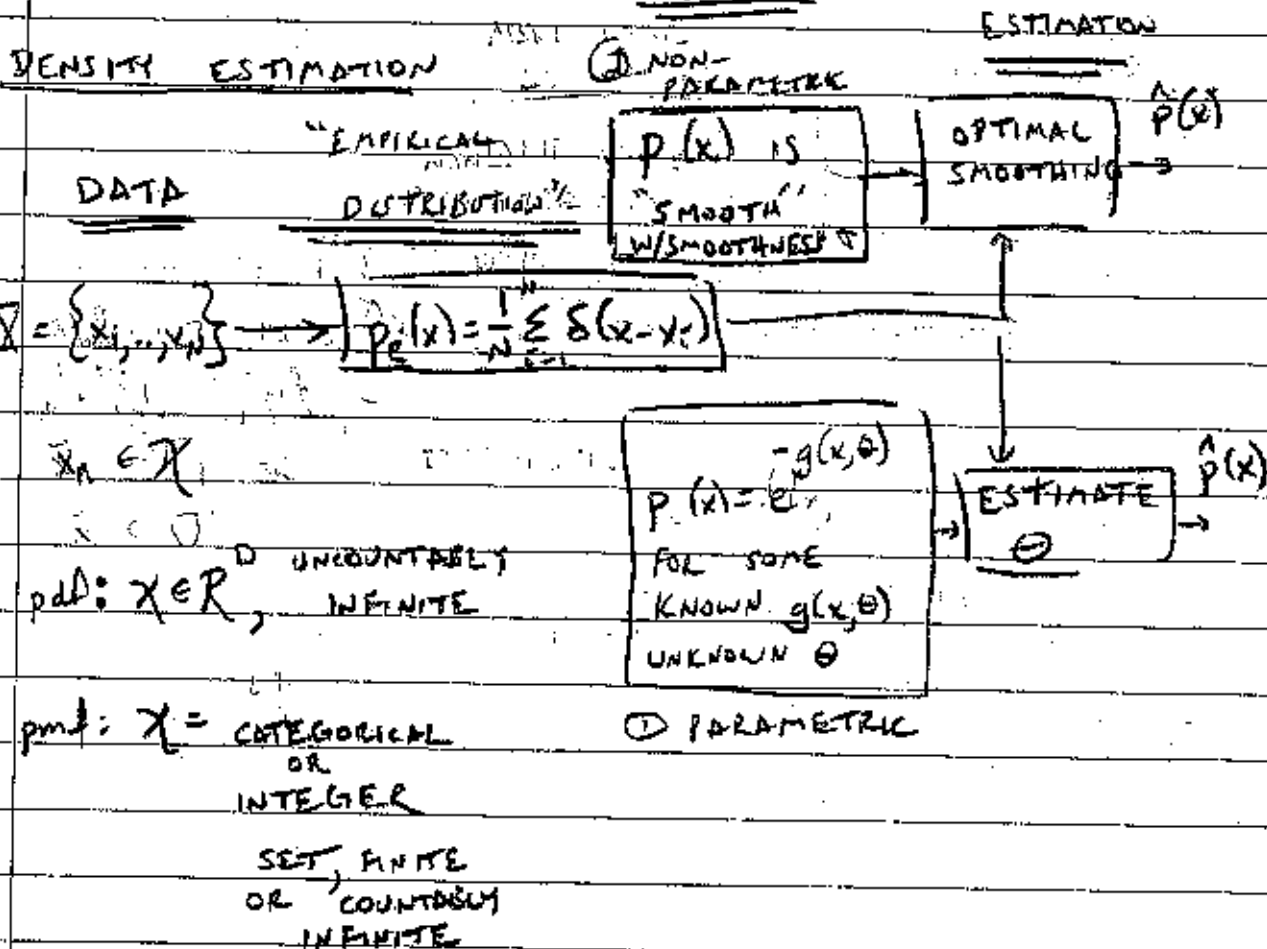 ESTIMATION
DENSITY ESTIMATION
② NON-
PARAMETRIC
"EMPIRICAL
DISTRIBUTION"
DATA
p(x) IS
"SMOOTH"
W/SMOOTHNESS σ
OPTIMAL
SMOOTHING
p̂(x)
X = {x₁,..,x_N} → p_e(x) = 1/N Σ_{i=1}^N δ(x-x_i)
x_n ∈ X
pdf: X ∈ R^D, UNCOUNTABLY
INFINITE
p(x) = e^{-g(x,θ)}
FOR SOME
KNOWN g(x,θ)
UNKNOWN θ
ESTIMATE
θ
p̂(x)
① PARAMETRIC
pmf: X = CATEGORICAL
OR
INTEGER
SET, FINITE
OR COUNTABLY
INFINITE